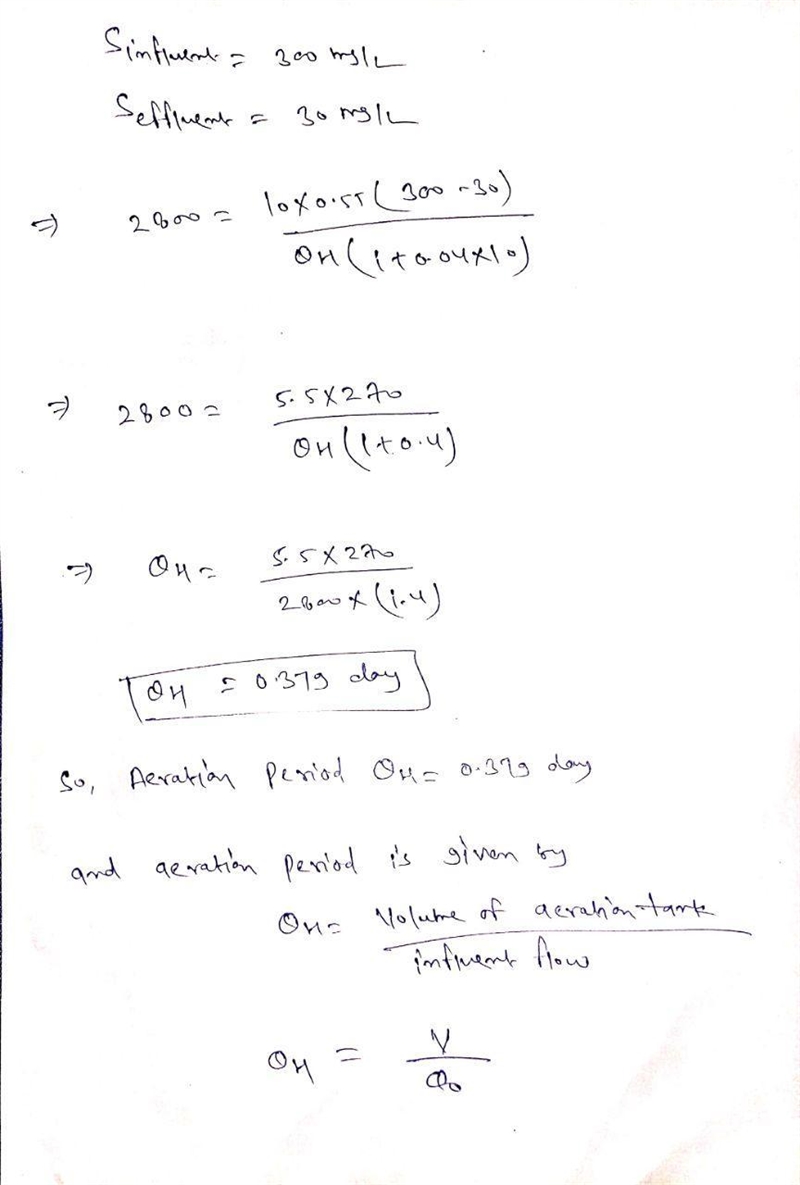 Sinfluent = 300 mg/L
Seffluent = 30 mg/L
⇒ 2800 = 10×0.55(300-30) / θH(1+0.04×10)
⇒ 2800 = 5.5×270 / θH(1+0.4)
⇒ θH = 5.5×270 / 2800×(1.4)
θH = 0.379 day
So, Aeration Period θH = 0.379 day
and aeration period is given by
θH = Volume of aeration tank / influent flow
θH = V / Q0